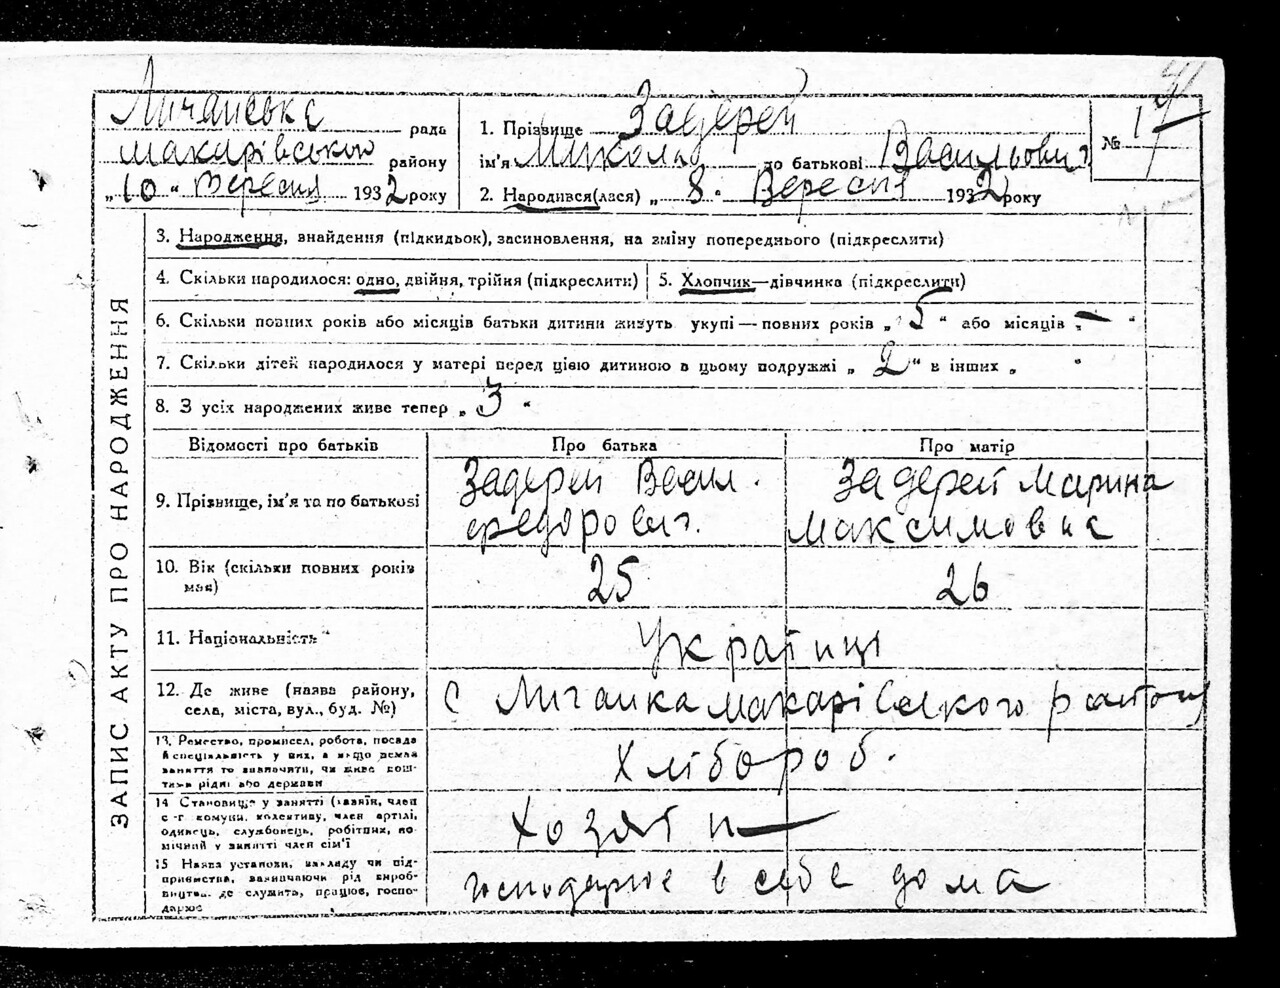 Личанська рада
Макарівського району
„10“ Вересня 1932 року
1. Прізвище Задерей
ім'я Микола по батькові Васильович
2. Народився(лася) „8“ Вересня 1932 року
№ 17
ЗАПИС АКТУ ПРО НАРОДЖЕННЯ
3. Народження, внайдення (підкидьок), засиновлення, на зміну попереднього (підкреслити)
4. Скільки народилося: одно, двійня, трійня (підкреслити)
5. Хлопчик—дівчинка (підкреслити)
6. Скільки повних років або місяців батьки дитини живуть укупі—повних років „5“ або місяців „—“
7. Скільки дітей народилося у матері перед цією дитиною в цьому подружжі „2“ в інших „ “
8. З усіх народжених живе тепер „3“
Відомості про батьків Про батька Про матір
9. Прізвище, ім'я та по батькові
Задерей Васил.
Федорович.
Задерей Марина
Максимовна
10. Вік (скільки повних років
має)
25 26
11. Національність
Українці
12. Де живе (назва району,
села, міста, вул., буд. №)
с Личанка Макарівського району
13. Ремество, промисел, робота, посада
й спеціяльність у них, а якщо немає
заняття то зазначити, чи живе кош-
тами рідні або держави
Хлібороб.
14 Становище у занятті (хазяїн, член
с.-г комуни, колективу, член артілі,
одинець, службовець, робітник, по-
мічний у занятті член сім'ї
Хозяїн —
15 Назва установи, закладу чи під-
приємства, зазначаючи рід вироб-
ництва, де служить, працює, госпо-
дарює
господарює в себе дома